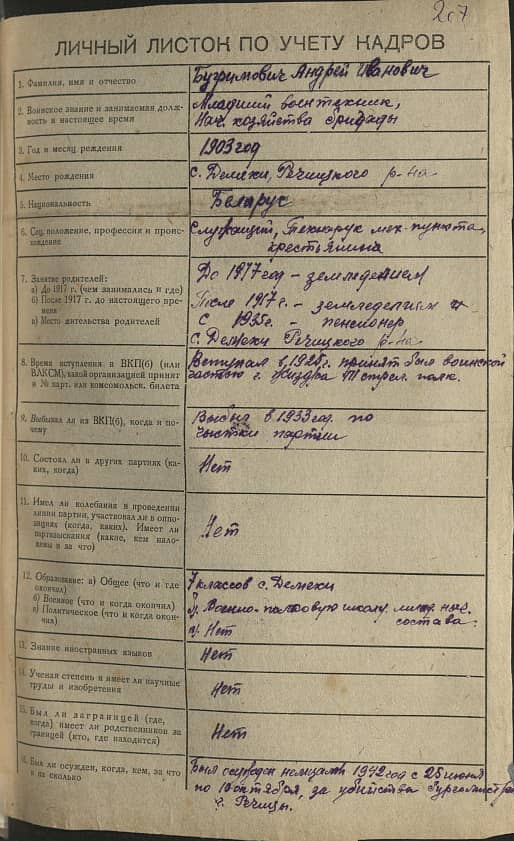 207
ЛИЧНЫЙ ЛИСТОК ПО УЧЕТУ КАДРОВ
1. Фамилия, имя и отчество
Бугримович Андрей Иванович
2. Воинское звание и занимаемая долж-
ность в настоящее время
Младший воентехник,
Нач. хозяйства бригады
3. Год и месяц рождения
1903 год
4. Место рождения
с. Демехи, Речицкого р-на
5. Национальность
Беларус
6. Соц. положение, профессия и проис-
хождение
Служащий, Технарук мех. пункта,
крестьянина
7. Занятие родителей:
а) До 1917 г. (чем занимались и где)
б) После 1917 г. до настоящего вре-
мени
в) Место жительства родителей
До 1917 год - земледелием
После 1917 г. - земледелием и
с 1935 г. - пенсионер
с. Демехи Речицкого р-на
8. Время вступления в ВКП(б) (или
ВЛКСМ), какой организацией принят
и № парт. или комсомольск. билета
Вступал в 1925 г. принят был воинской
частью г. Жиздра стрел. полк.
9. Выбывал ли из ВКП(б), когда и по-
чему
Выбыл в 1933 год. по
чыстки партии
10. Состоял ли в других партиях (ка-
ких, когда)
Нет
11. Имел ли колебания в проведении
линии партии, участвовал ли в оппо-
зициях (когда, каких). Имеет ли
партвзыскания (какие, кем нало-
жены и за что)
Нет
12. Образование: а) Общее (что и где
окончил)
б) Военное (что и когда окончил)
в) Политическое (что и когда окон-
чил)
7 классов с. Демехи
Военно-полковую школу состава.
в) Нет
13. Знание иностранных языков
Нет
14. Ученая степень и имеет ли научные
труды и изобретения
Нет
15. Был ли заграницей (где,
когда) имеет ли родственников за
границей (кто, где находится)
Нет
16. Был ли осужден, когда, кем, за что
и на сколько
Был осужден немцами 1942 год с 25 июня
по 10 октября, за убийства Бургомистра
г. Речицы.